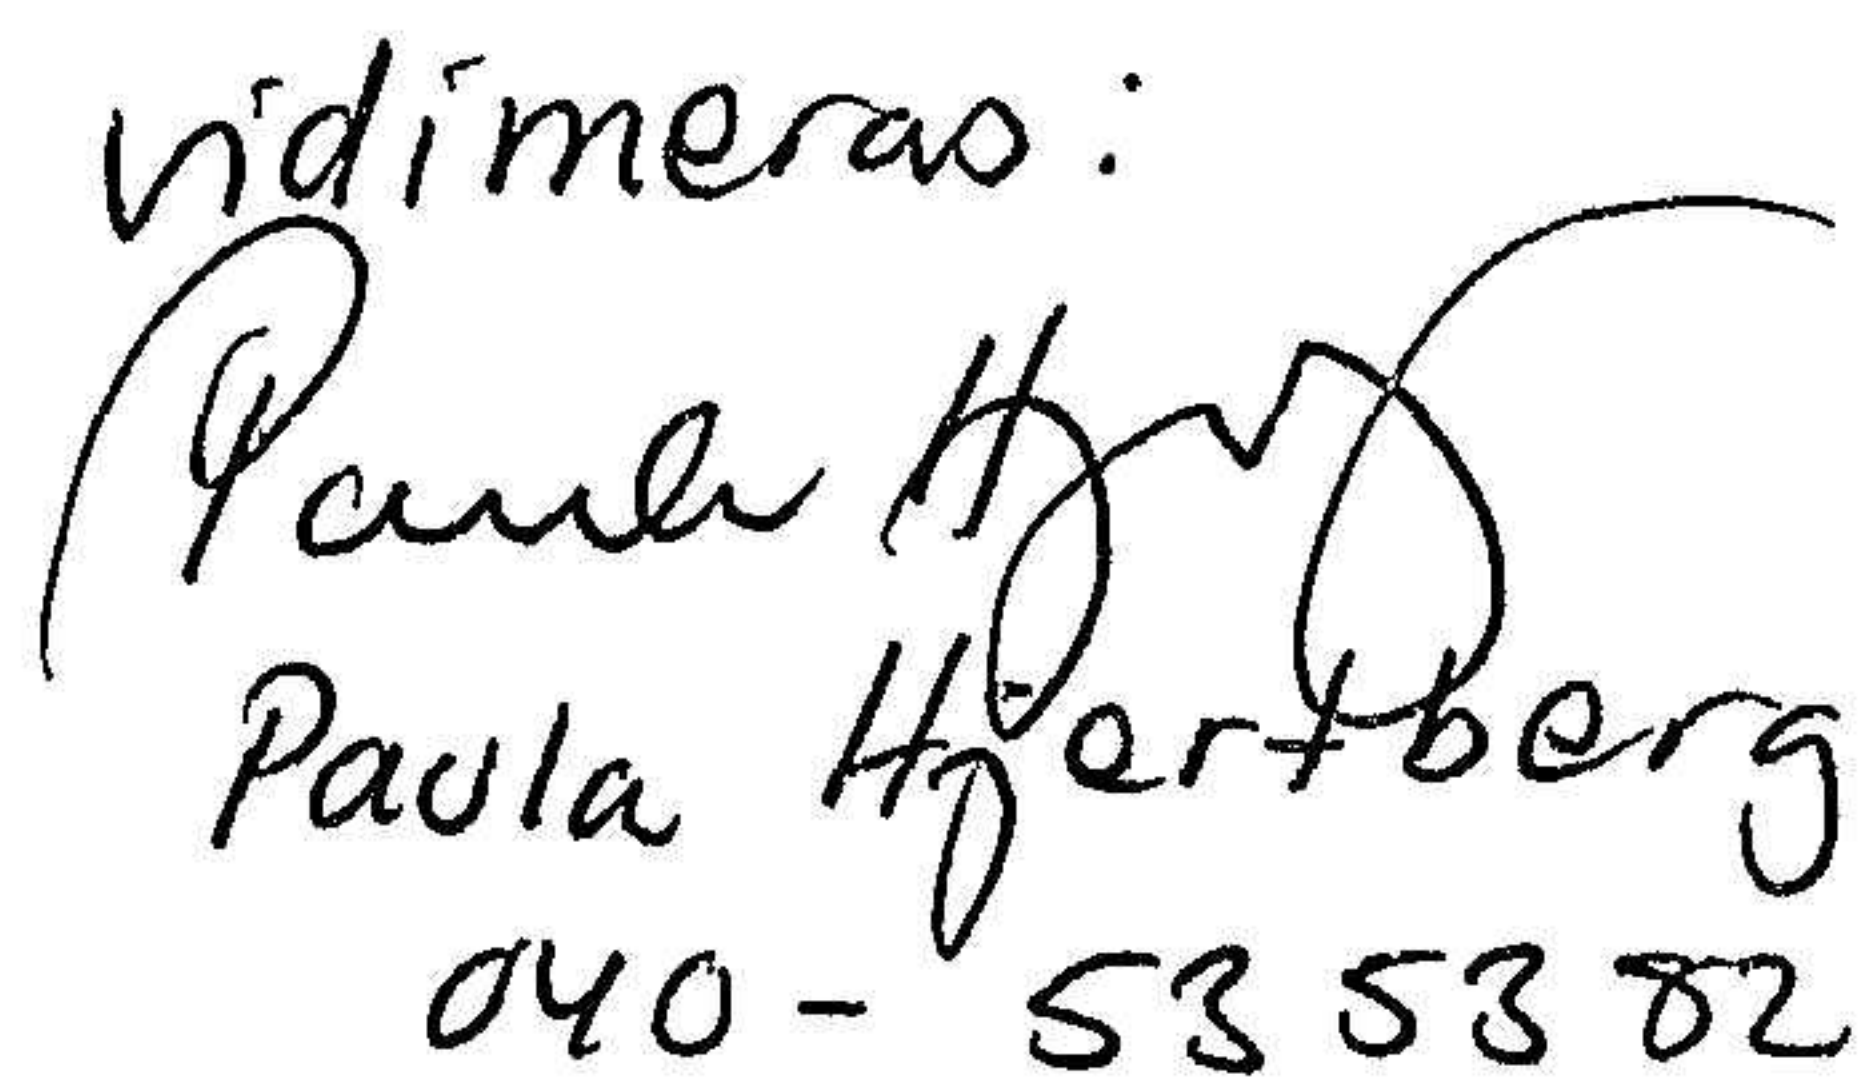 vidimeras:
Paula Hj
Paula Hjertberg
040 - 53 53 82